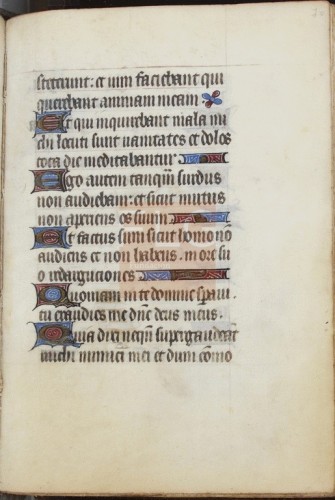 steterunt: et uim faciebant qui
querebant animam meam
Et qui inquirebant mala mi
chi locuti sunt uanitates et dolos
tota die meditabantur
Ego autem tanqu̅ surdus
non audiebam: et sicut mutus
non aperiens os suum
Et factus sum sicut homo no̅
audiens et non habens in ore su
o redargutiones
Quoniam in te domine spaui.
tu exaudies me dn̅e deus meus.
Quia dixi nequ̅ supergaudeant
michi inimici mei et dum co̅mo